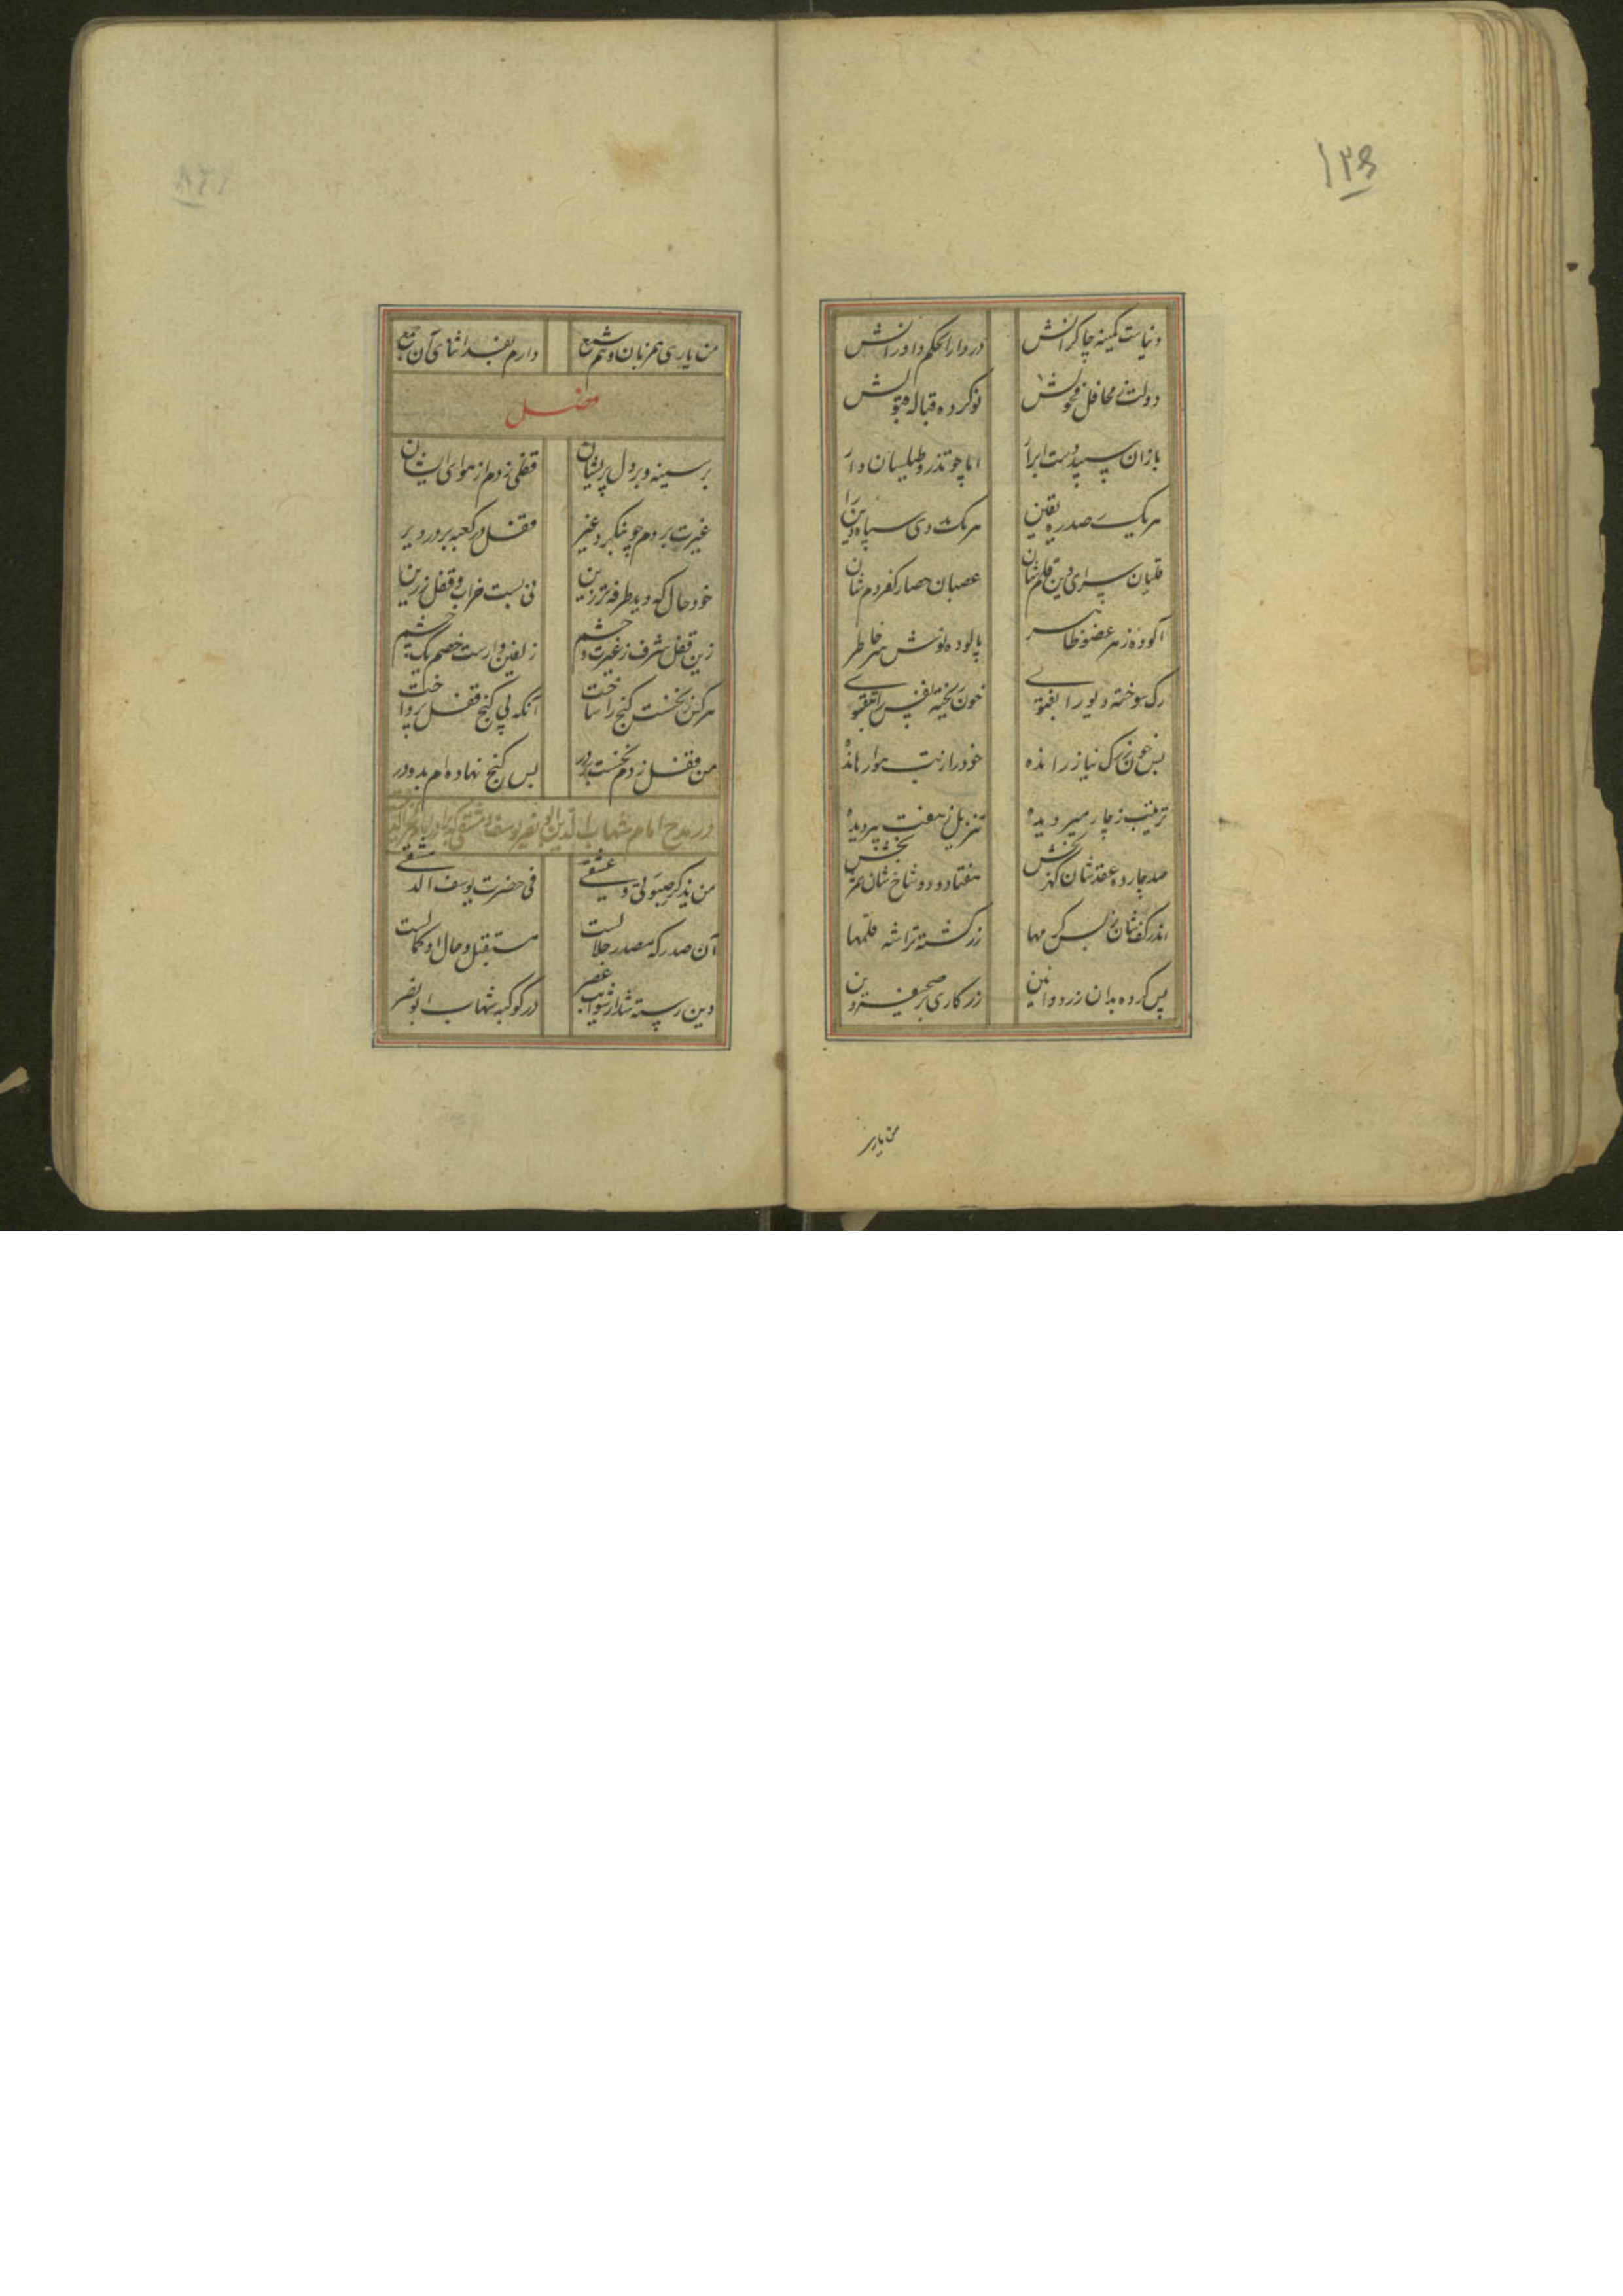 ۱۲۹
دنیاست کمینه چاکرانش در دارالحکم داورانش
دولت ز محافل فحولش نو کرده قباله قبولش
بازان سپید دست ابرار اما چو تذرو طیلسان دار
هر یک صدر ره یقین را هر یک سپاه دین را
قلبان سرای دین قلم‌شان عصبان حصار کفر دم‌شان
آلوده ز هر عضو ظاهر پالوده نوش سر خاطر
رگ سوخته دیو را بفتوی خون ریخته نفس را بتقوی
بس خون ز رگ نیاز رانده خود را ز تب هوا رهانده
ترتیب ز چار میر دیده تنزیل ز هفت پیر دیده
صد چارده عقدشان گهر بخش هفتاد و دو شاخ‌شان عمر بخش
اندر کف‌شان ز بس کرمها زر گشته تراشه قلمها
پس کرده بدان زر دوایین زرکاری بر صحیفه دین
من یاری
من یاری همزبان و هم شمع دارم بفدا ثنای آن جمع
فصل
بر سینه و بر دل پریشان قفلی زدم از هوای ایشان
غیرت بردم چو بنگرد غیر قفل در کعبه بر در دیر
خود حال که دید طرفه‌تر زین نی بست خراب و قفل زرین
زین قفل شرف ز غیرت و خشم زلفین وارست خصم یک چشم
هر کس ز نخست گنج را ساخت آنگه پی گنج قفل پرداخت
من قفل زدم نخست بر در بس گنج نهاده‌ام بدو در
در مدح امام شهاب الدین ابو نصر یوسف دمشقی
من یذکر صبوتی و عشقی فی حضرت یوسف الدمشقی
آن صدر که مصدر جلالست مستقبل و حال او کمالست
دین رسته شد از شوایب عصر در کوکبه شهاب ابو نصر